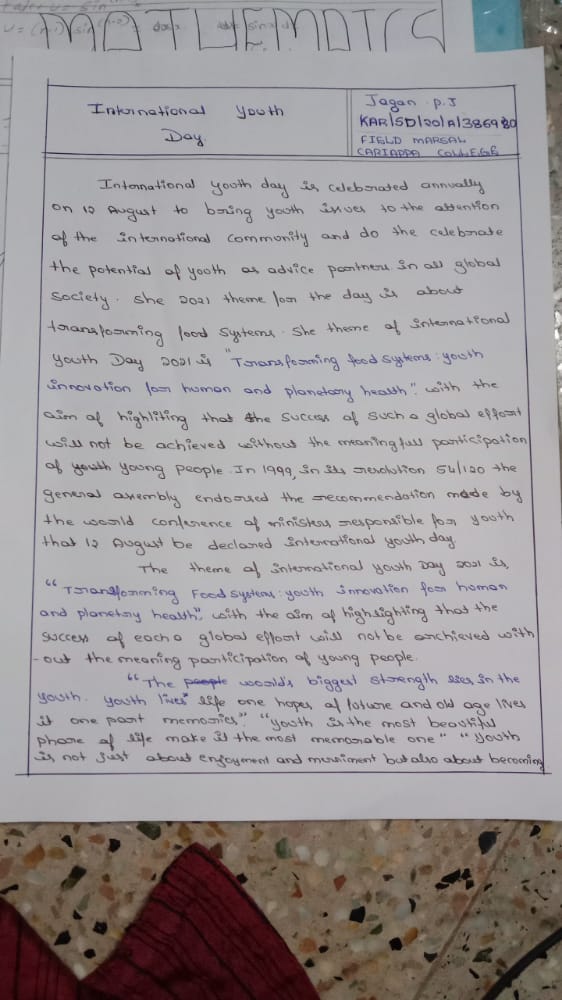 MATHEMATICS
International Youth
Day.
Jagan P.J
KAR/SD/20/A/386980
FIELD MARSAL
CARIAPPA COLLEGE
International youth day is celebrated annually
on 12 August to bring youth issues to the attention
of the international community and do the celebrate
the potential of youth as advice partners in all global
society. She 2021 theme for the day is about
transforming food systems. She theme of international
youth Day 2021 is "Transforming food systems: youth
innovation for human and planetary health". with the
aim of highliting that the success of such a global effort
will not be achieved without the meaningfull participation
of youth young people. In 1999, in its resolution 54/120 the
general assembly endorsed the recommendation made by
the world conference of ministers responsible for youth
that 12 August be declared international youth day.
The theme of international youth Day 2021 is,
"Transforming Food systems: youth innovation for human
and planetary health", with the aim of highlighting that the
success of each a global effort will not be archieved with
-out the meaning participation of young people.
"The people world's biggest strength lies in the
youth. youth lives" life one hopes of future and old age lives
it one past memories". "youth is the most beautiful
phase of life make it the most memorable one" "youth
is not just about enjoyment and muniment but also about becoming